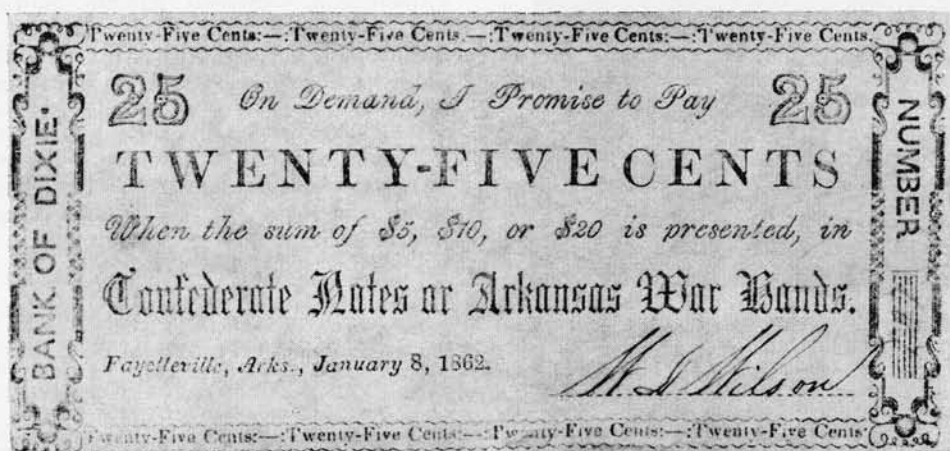 Twenty-Five Cents:—:Twenty-Five Cents.—:Twenty-Five Cents:—:Twenty-Five Cents.
BANK OF DIXIE.
25 On Demand, I Promise to Pay 25
TWENTY-FIVE CENTS
When the sum of $5, $10, or $20 is presented, in
Confederate Notes or Arkansas War Bonds.
Fayetteville, Arks., January 8, 1862.
W D Wilson
NUMBER
Twenty-Five Cents:—:Twenty-Five Cents:—:Twenty-Five Cents:—:Twenty-Five Cents